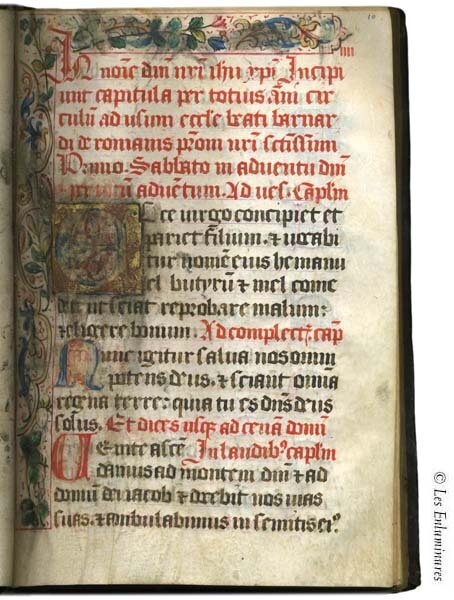 10
iiii
In noīe dm̄ nrī ihū xp̄i Incipi
unt capitula per totius anī cir
culū ad usum ecclē beati barnar
di de romanis prom̄ nrī sctīssim
Primo. Sabbato in adventu dm̄
aduentum. Ad ves. Caplm̄
Ecce uirgo concipiet et
pariet filium. & uocabi
tur nomē eius hemanu
el butyrū & mel come
det ut sciat reprobare malum:
& eligere bonum. Ad complect. cap
Nunc igitur salua nos omni
potens deus. & sciant omīa
regna terre: quia tu es dn̄s deus
solus. Et dices usq; ad cena domī
Uenite ascē. In laudib9 caplm̄
damus ad montem dm̄ & ad
domū dei iacob & docebit nos uias
suas. & ambulabimus in semitis ei9
© Les Enluminures